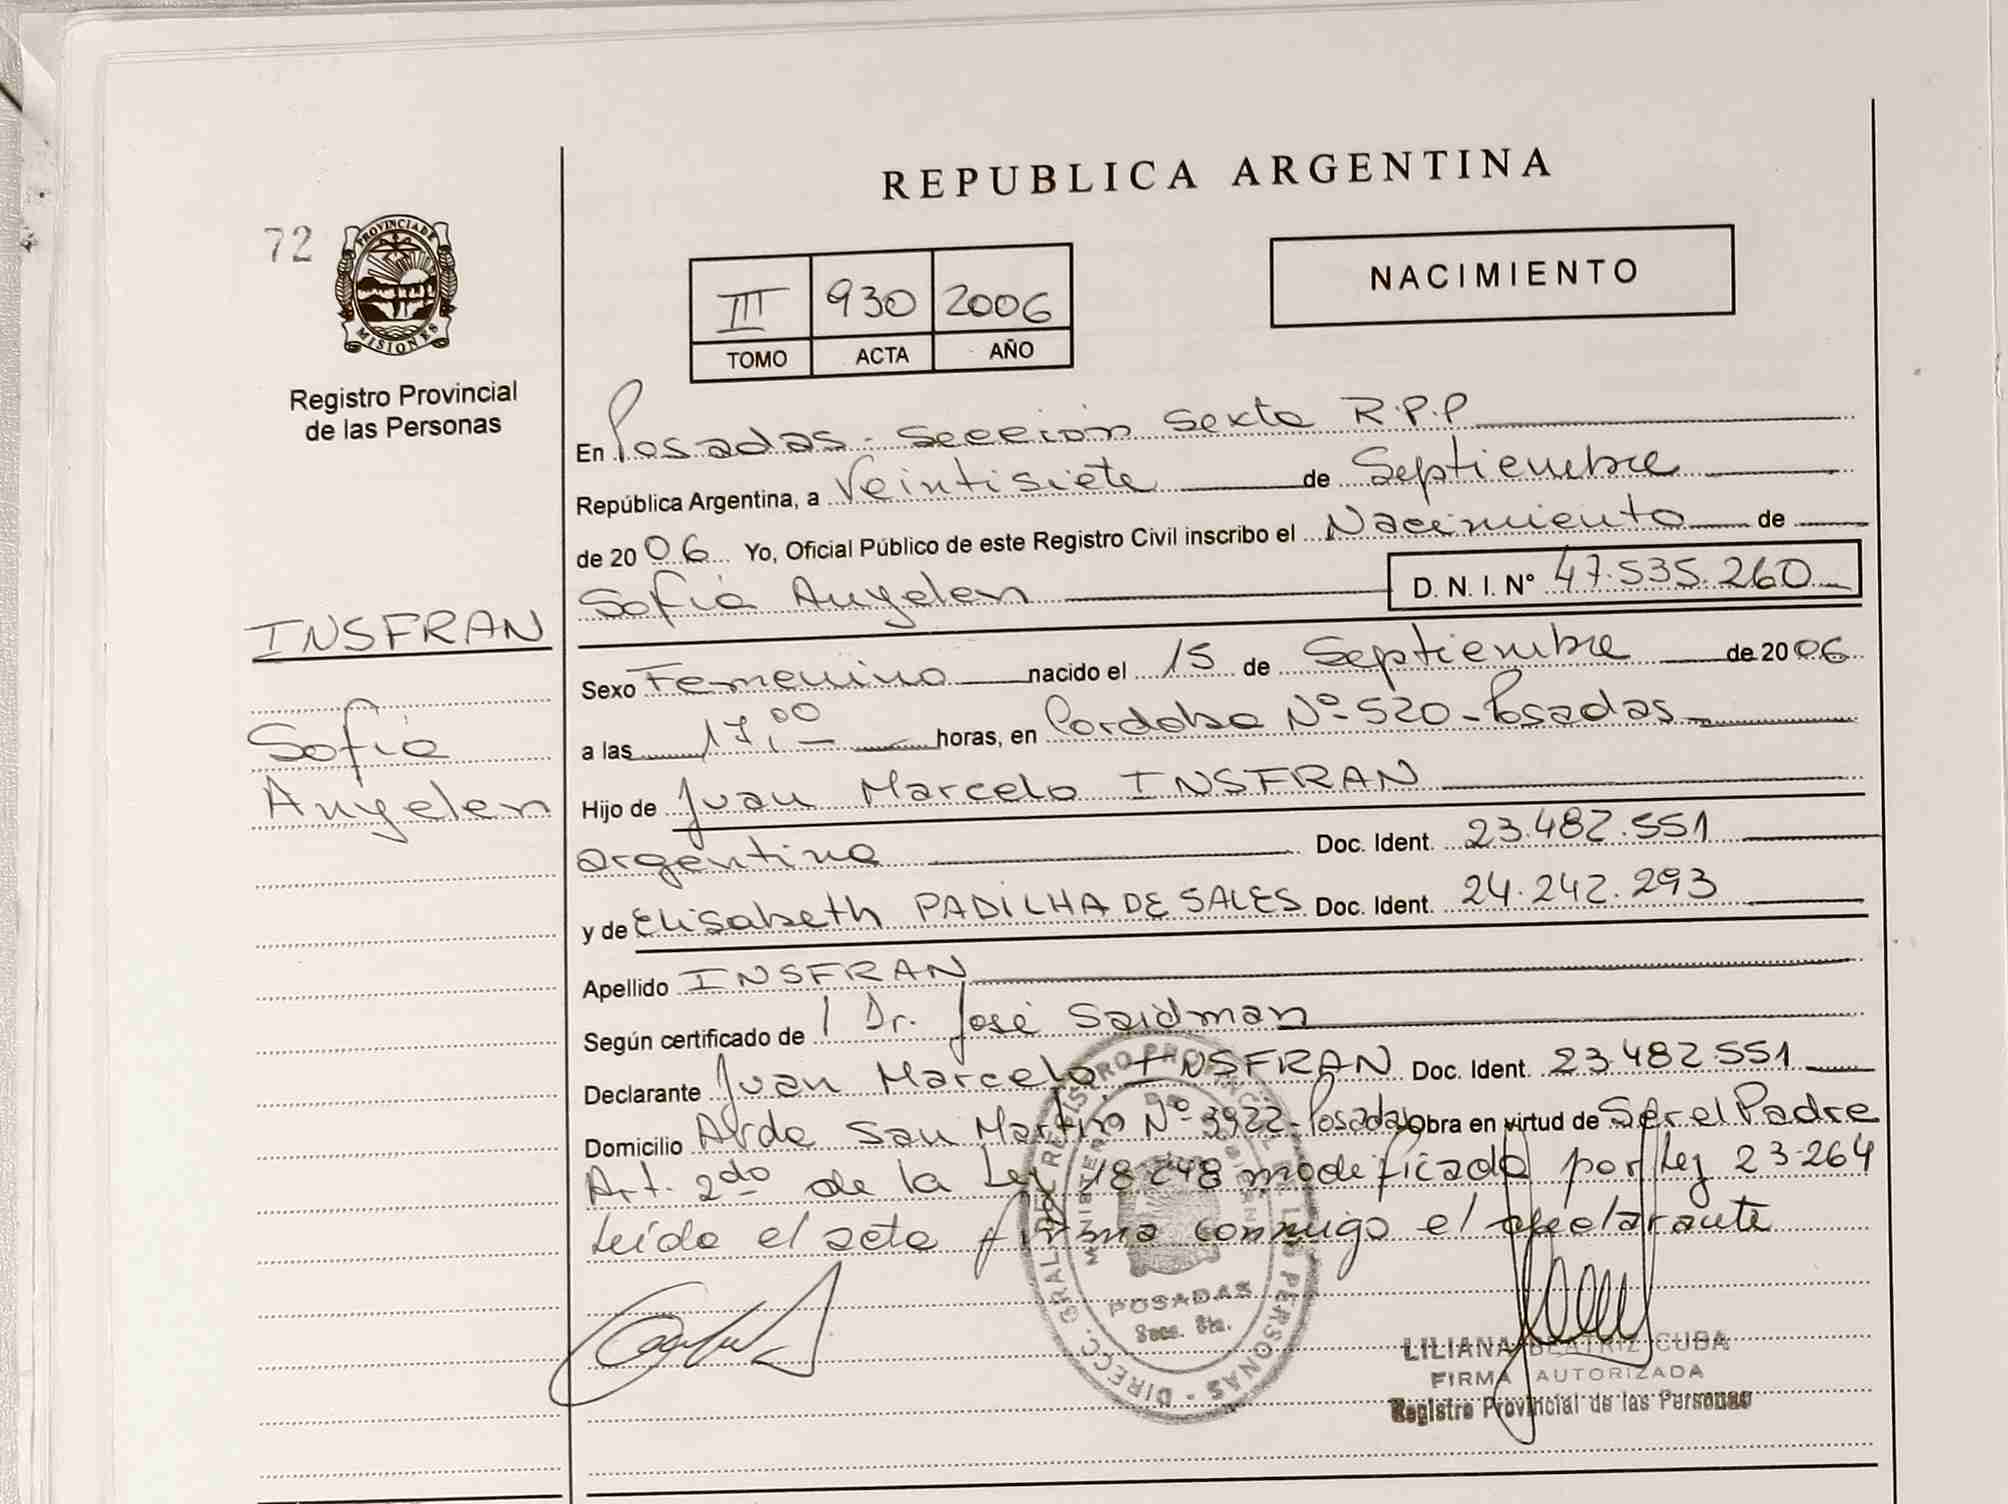 REPUBLICA ARGENTINA
72
PROVINCIA DE
MISIONES
Registro Provincial
de las Personas
III 930 2006
TOMO ACTA AÑO
NACIMIENTO
En Posadas - Seccion Sexta R.P.P
República Argentina, a Veintisiete de Septiembre
de 2006 Yo, Oficial Público de este Registro Civil inscribo el Nacimiento de
Sofia Anyelen D. N. I. N° 47.535.260
INSFRAN
Sofia
Anyelen
Sexo Femenino nacido el 15 de Septiembre de 2006
a las 17,00 horas, en Cordoba Nº 520 - Posadas
Hijo de Juan Marcelo INSFRAN
argentino Doc. Ident. 23.482.551
y de Elisabeth PADILHA DE SALES Doc. Ident. 24.242.293
Apellido INSFRAN
Según certificado de Dr. José Saidman
Declarante Juan Marcelo INSFRAN Doc. Ident. 23.482.551
Domicilio Avda San Martin Nº 3922 - Posadas obra en virtud de Ser el Padre
Art. 2do de la Ley 18248 modificada por Ley 23.264
Leida el acta firma conmigo el declarante
DIRECC. GRAL. DEL REGISTRO PROVINCIAL DE LAS PERSONAS
POSADAS
Secc. 6ta.
LILIANA BEATRIZ CUBA
FIRMA AUTORIZADA
Registro Provincial de las Personas